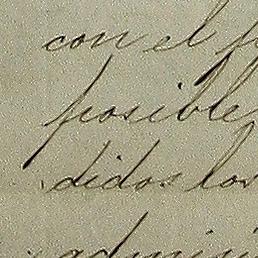 con el
posible
didos los